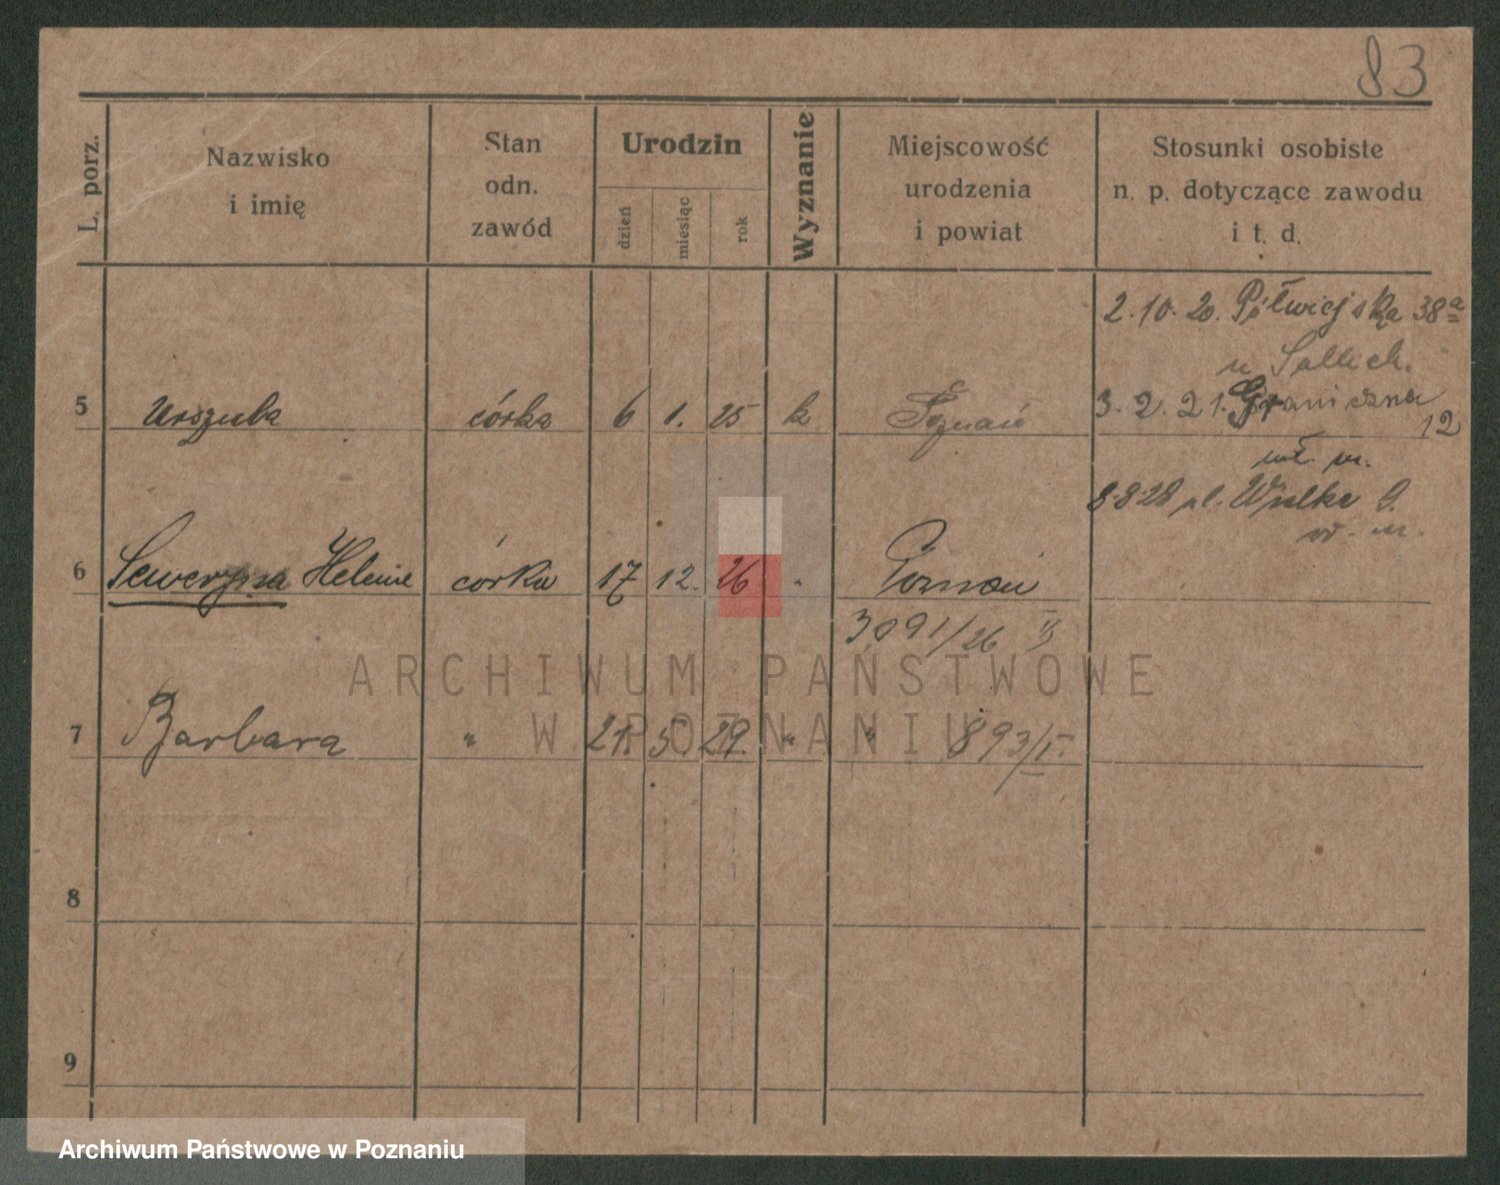 83
L. porz.
Nazwisko
i imię
Stan
odn.
zawód
Urodzin
dzień
miesiąc
rok
Wyznanie
Miejscowość
urodzenia
i powiat
Stosunki osobiste
n. p. dotyczące zawodu
i t. d.
2.10.20. Półwiejska 38a
u
5 Urszula córka 6 1. 25 k Poznań
3.2.21. Graniczna
12
wł. m.
8.8.28 pl.
6 Seweryna Helena córka 17 12. 26 " Poznań
3091/26 II
ARCHIWUM PAŃSTWOWE
W POZNANIU
7 Barbara " 21. 5. 29. " " 893/I.
8
9
Archiwum Państwowe w Poznaniu